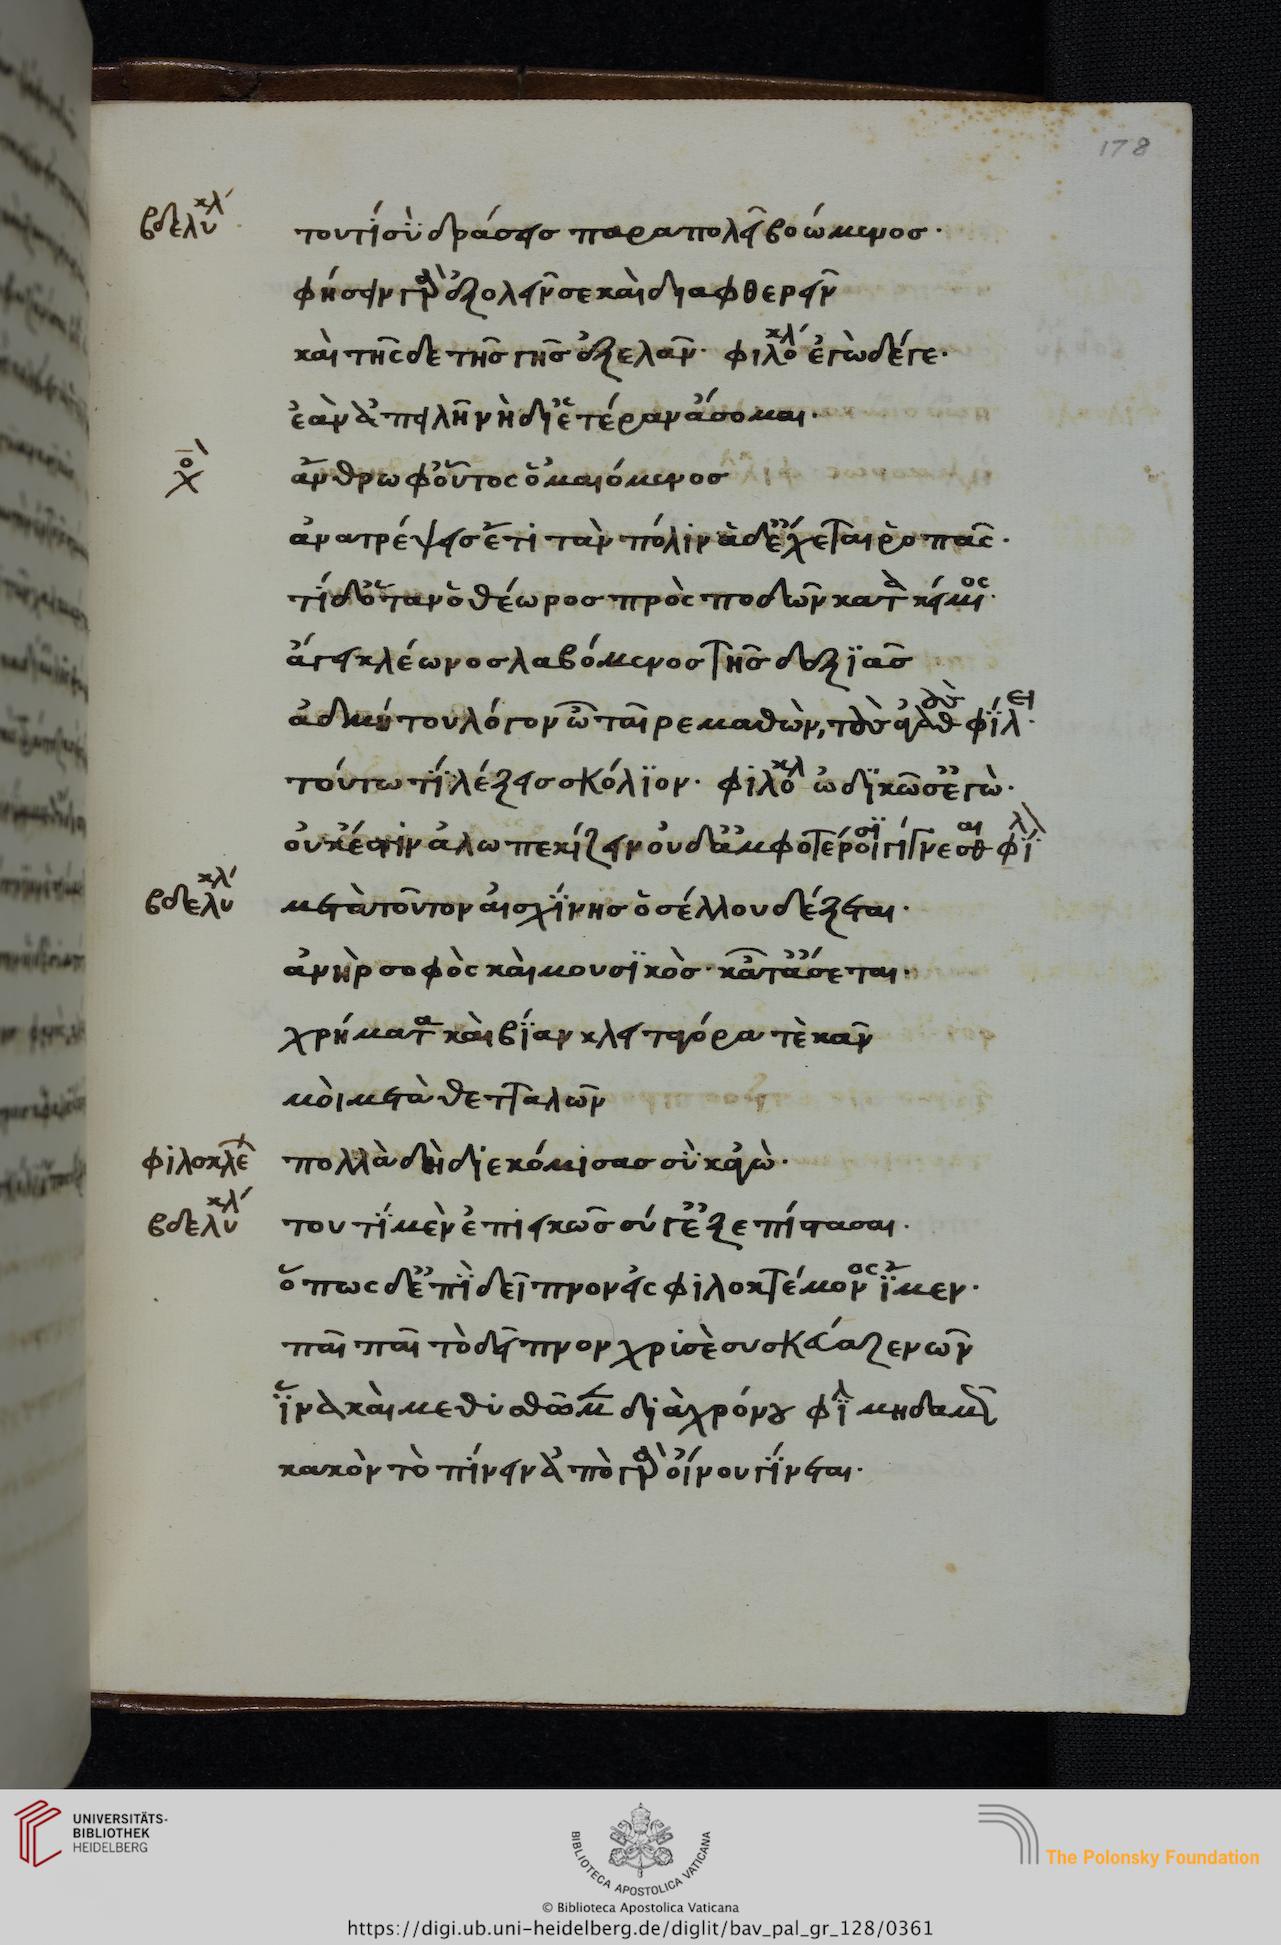 178
βδελυκλ´ τουτί σὺ δράσεις παραπολεῖ βοώμενος·
φήσειν γὰρ ἐξολεῖν σε καὶ διαφθερεῖν
καὶ τῆσδε τῆς γῆς ἐξελᾶν· φιλοκλ´ ἐγὼ δέ γε·
ἐὰν ἀπειλῆ νὴ δί ἑτέραν ἄσομαι·
χο ἄνθρωφ οὗτος ὁ μαιόμενος
ἀνατρέψεις ἔτι τὰν πόλιν ἁ δ᾽ ἔχεται ῥοπᾶς·
τί δ᾽ ὅταν ὁ θέωρος πρὸς ποδῶν κατακείμενος·
ἄγει κλέωνος λαβόμενος τῆς δεξϊᾶς
ἀδμήτου λόγον ὦ ταῖρε μαθὼν, τοὺς ἀγαθοὺς φίλει·
τούτω τί λέξεις σκόλϊον· φιλοκλ ὠδϊκῶς ἐγὼ·
οὐκ ἔστιν ἀλωπεκίζειν οὐδ᾽ ἀμφοτέροισϊ γίγνεσθαι φίλ
βδελυκλ´ μετὰ τοῦτον αἰσχίνης ὁ σέλλου δέξεται·
ἀνὴρ σοφὸς καὶ μουσϊκὸς· κᾆτ᾽ ἄσεται·
χρήματα καὶ βίαν κλειταγόρα τὲ κἀν
μοὶ μετὰ θετταλῶν
φιλοκλέ πολλὰ δὴ διεκόμισας σὺ κἀγὼ·
βδελυκλ´ τουτί μὲν ἐπιεικῶς σύ γ᾽ ἐξεπίστασαι·
ὅπως δ᾽ ἐπὶ δεῖπνον εἰς φιλοκτέμονος ἴμεν·
παῖ παῖ τὸ δεῖπνον χρισὲ συσκεύαζε νῶν
ἵνα καὶ μεθυσθῶμεν διὰ χρόνου φιλ μηδαμῶς
κακὸν τὸ πίνειν ἀπὸ γὰρ οἴνου γίνεται·
UNIVERSITÄTS-
BIBLIOTHEK
HEIDELBERG
BIBLIOTECA APOSTOLICA VATICANA
The Polonsky Foundation
© Biblioteca Apostolica Vaticana
https://digi.ub.uni-heidelberg.de/diglit/bav_pal_gr_128/0361